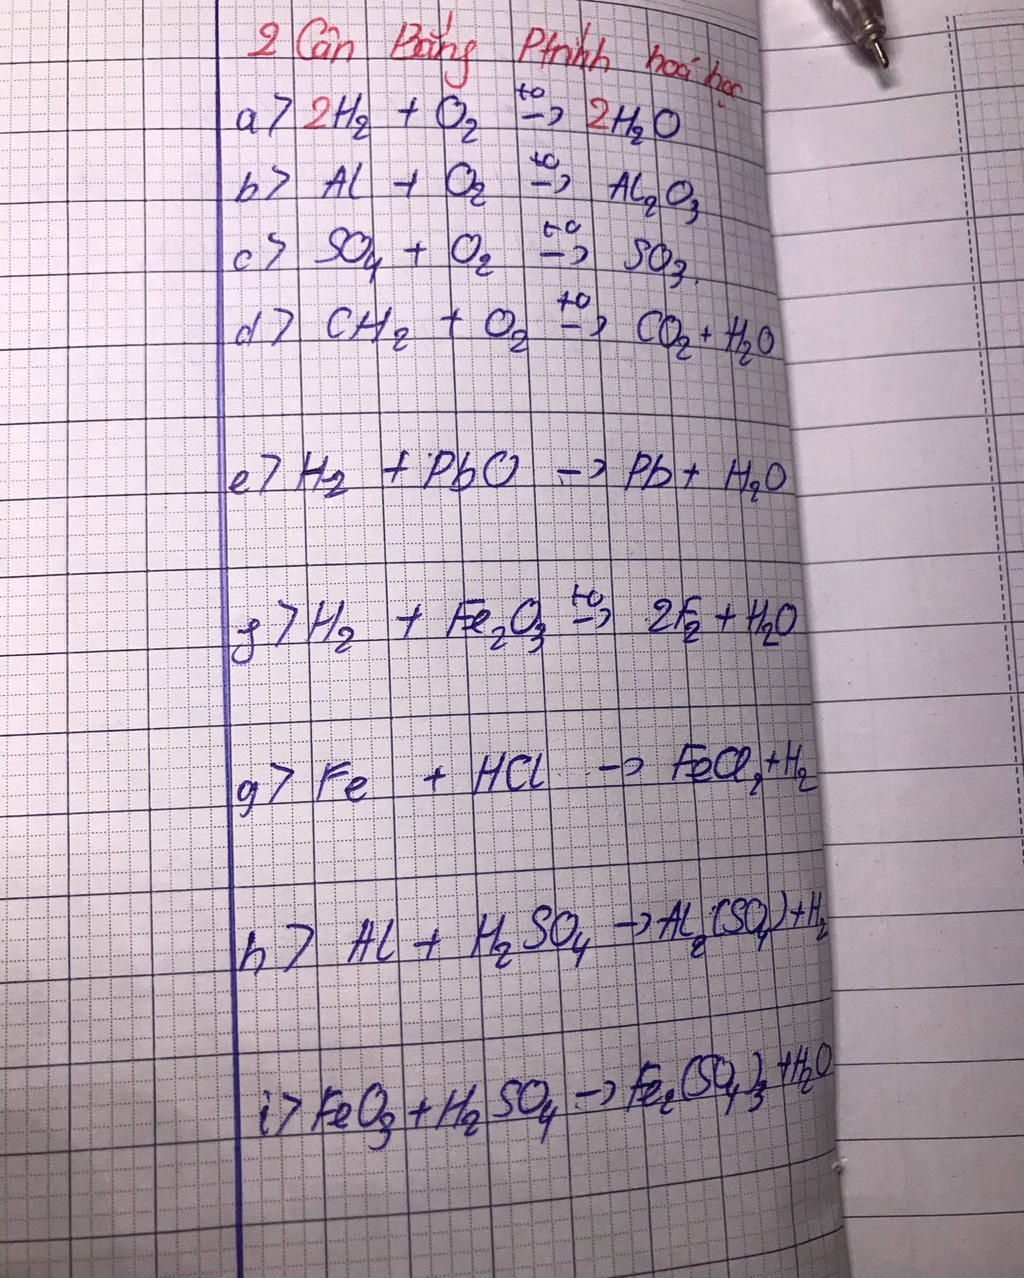 2 Cân Bằng Ptrình hoá học
a> 2H₂ + O₂ →(to) 2H₂O
b> Al + O₂ →(to) Al₂O₃
c> SO₄ + O₂ →(to) SO₃
d> CH₂ + O₂ →(to) CO₂ + H₂O
e> H₂ + PbO → Pb + H₂O
f> H₂ + Fe₂O₃ →(to) 2F₂ + H₂O
g> Fe + HCl → FeCl₂ + H₂
h> Al + H₂SO₄ → Al₂(SO₄) + H₂
i> FeO₃ + H₂SO₄ → Fe₂(SO₄)₃ + H₂O